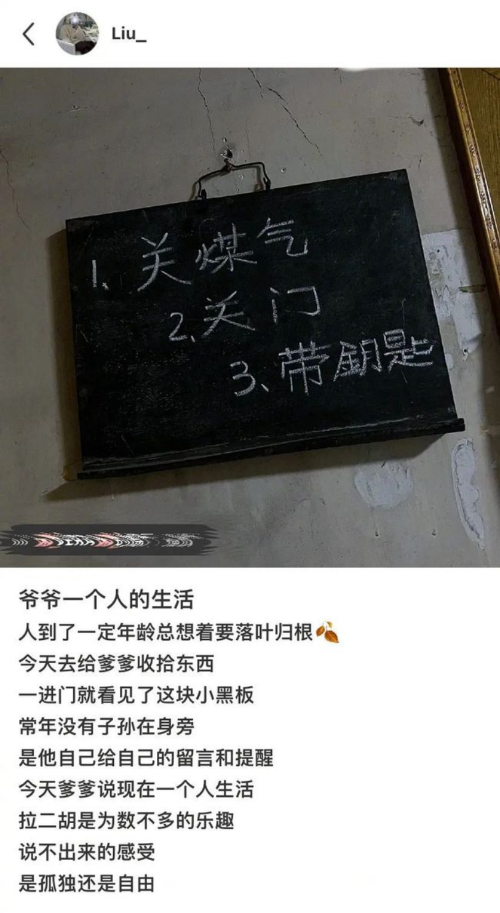 Liu_
1、关煤气
2、关门
3、带钥匙
爷爷一个人的生活
人到了一定年龄总想着要落叶归根🍂
今天去给爹爹收拾东西
一进门就看见了这块小黑板
常年没有子孙在身旁
是他自己给自己的留言和提醒
今天爹爹说现在一个人生活
拉二胡是为数不多的乐趣
说不出来的感受
是孤独还是自由